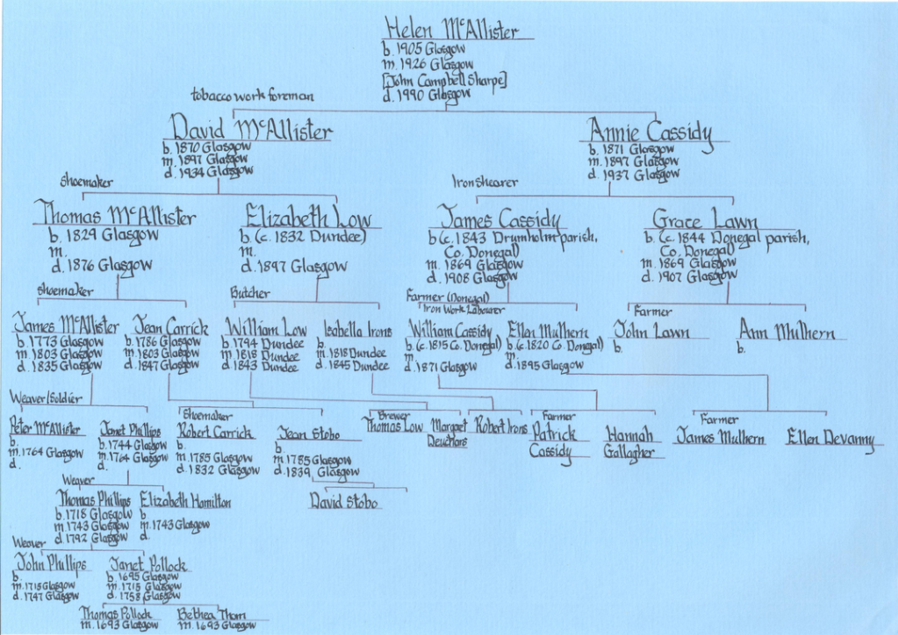 Helen McAllister
b. 1905 Glasgow
m. 1926 Glasgow
[John Campbell Sharpe]
d. 1990 Glasgow
tobacco work foreman
David McAllister
b. 1870 Glasgow
m. 1897 Glasgow
d. 1934 Glasgow
Annie Cassidy
b. 1871 Glasgow
m. 1897 Glasgow
d. 1937 Glasgow
shoemaker
Thomas McAllister
b. 1829 Glasgow
m.
d. 1876 Glasgow
Elizabeth Low
b (c. 1832 Dundee)
m.
d. 1897 Glasgow
Iron shearer
James Cassidy
b (c. 1843 Drumholm parish,
Co. Donegal)
m. 1869 Glasgow
d. 1908 Glasgow
Grace Lawn
b. (c. 1844 Donegal parish,
Co. Donegal)
m. 1869 Glasgow
d. 1907 Glasgow
shoemaker
James McAllister
b 1773 Glasgow
m 1803 Glasgow
d. 1835 Glasgow
Jean Carrick
b 1786 Glasgow
m 1803 Glasgow
d. 1847 Glasgow
Butcher
William Low
b 1794 Dundee
m 1818 Dundee
d 1843 Dundee
Isabella Irons
b.
m. 1818 Dundee
d. 1845 Dundee
Farmer (Donegal)
Iron Work Labourer
William Cassidy
b. (c. 1815 Co. Donegal)
m.
d. 1871 Glasgow
Ellen Mulhern
b. (c. 1820 Co Donegal)
m.
d. 1895 Glasgow
Farmer
John Lawn
b.
Ann Mulhern
b.
Weaver/Soldier
Peter McAllister
b.
m. 1764 Glasgow
d.
Janet Phillips
b. 1744 Glasgow
m. 1764 Glasgow
d.
Shoemaker
Robert Carrick
b.
m. 1785 Glasgow
d. 1832 Glasgow
Jean Stobo
b
m. 1785 Glasgow
d. 1839 Glasgow
Brewer
Thomas Low
Margaret
Deuchars
Robert Irons
Farmer
Patrick
Cassidy
Hannah
Gallagher
Farmer
James Mulhern
Ellen Devanny
David Stobo
Weaver
Thomas Phillips
b. 1718 Glasgow
m 1743 Glasgow
d. 1792 Glasgow
Elizabeth Hamilton
b
m. 1743 Glasgow
d.
Weaver
John Phillips
b.
m. 1715 Glasgow
d. 1747 Glasgow
Janet Pollock
b. 1695 Glasgow
m. 1715 Glasgow
d. 1758 Glasgow
Thomas Pollock
m. 1693 Glasgow
Bethea Thom
m. 1693 Glasgow